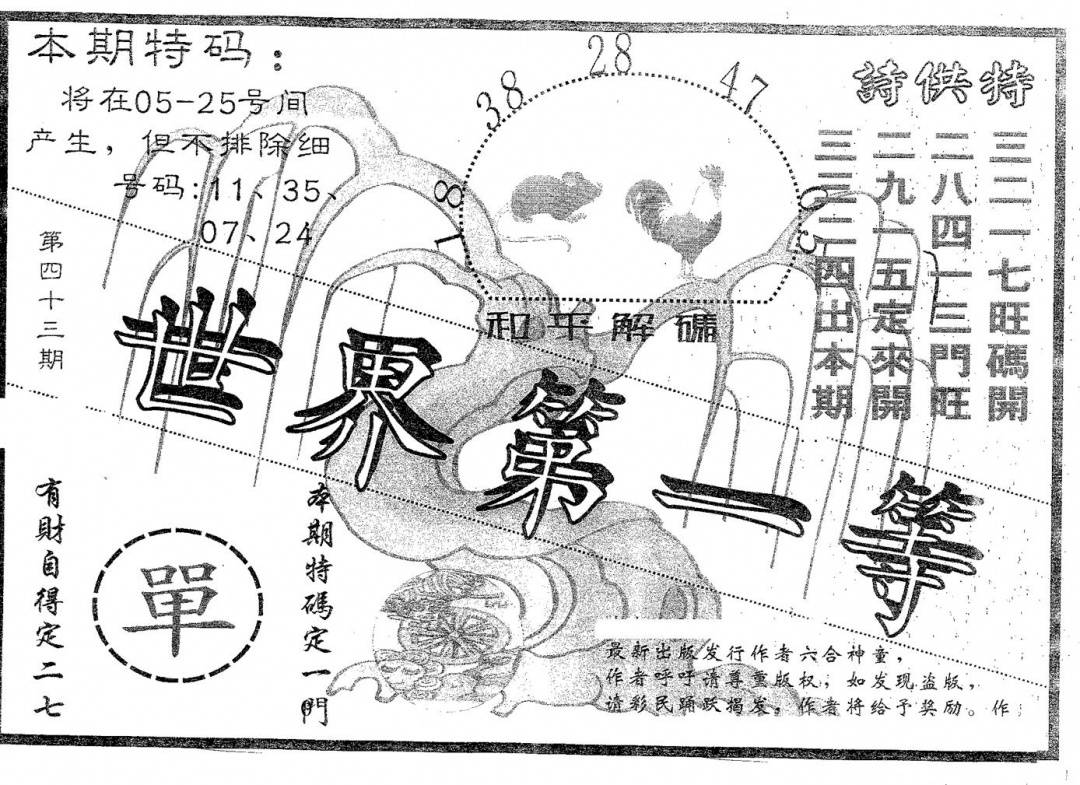 本期特码：
将在05-25号间
产生，但不排除细
号码:11、35、
07、24
第四十三期
38
28
47
18
05
和平解礦
特供詩
三二一七旺碼開
二八四一三門旺
二九一五定來開
三三二四出本期
世界第一等
有財自得定二七
單
本期特碼定一門
最新出版发行作者六合神童，
作者呼吁请尊重版权，如发现盗版，
请彩民踊跃揭发，作者将给予奖励。作